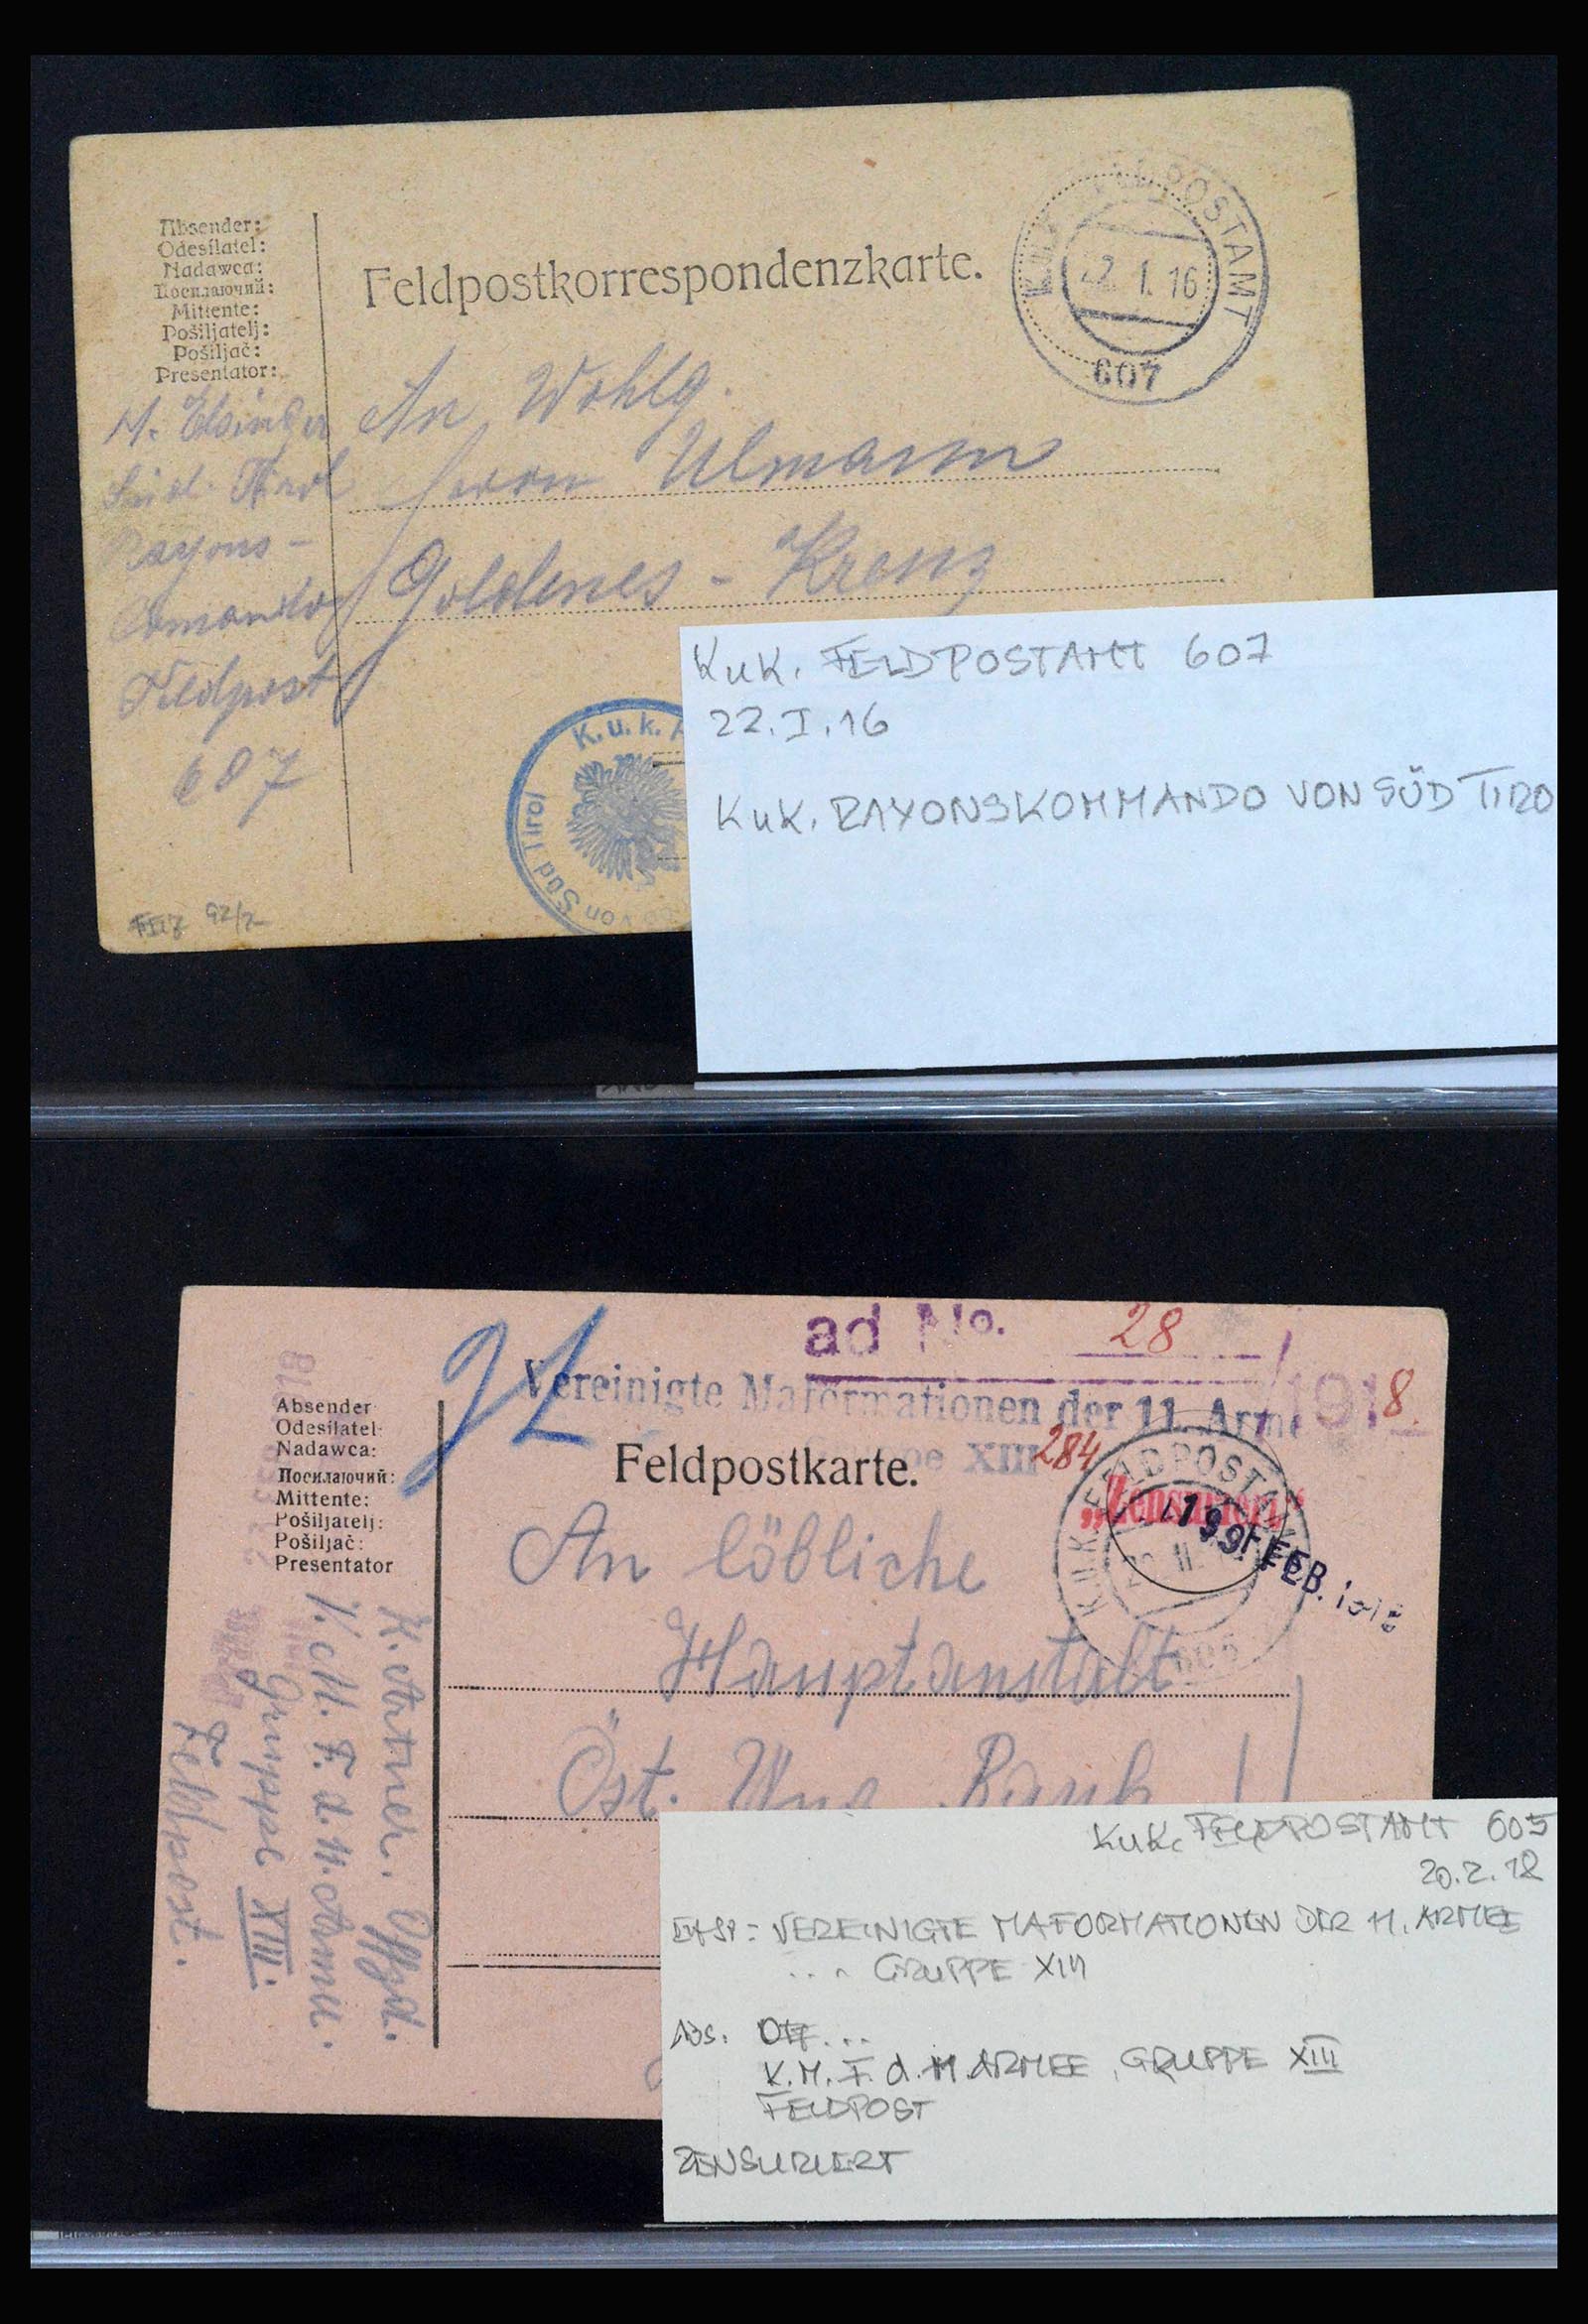 Absender:
Odesílatel:
Nadawca:
Посилаючий:
Mittente:
Pošiljatelj:
Pošiljač:
Presentator:
Feldpostkorrespondenzkarte.
K.u.K. FELDPOSTAMT
22. 1. 16
607
An Wohlg.
Herrn Ulmann
Goldenes - Kreuz
Süd. Tirol
Rayons -
Comando
Feldpost
607
K.u.k.
von Süd Tirol
KuK. FELDPOSTAMT 607
22.I.16
KuK. RAYONSKOMMANDO VON SÜD TIRO
ad No. 28
/1918.
Vereinigte Maformationen der 11. Arme
XIII
284
Absender
Odesílatel
Nadawca:
Посилаючий:
Mittente:
Pošiljatelj:
Pošiljač:
Presentator
Feldpostkarte.
K.u.K. FELDPOSTAMT
605
„Zensuriert"
FEB. 1918
An löbliche
Hauptanstalt
Öst. Ung. Bank
K. Artner. Offzl.
V. M. F. d. 11. Armee.
Gruppe XIII.
Feldpost.
KuK. FELDPOSTAMT 605
20.2.18
VEREINIGTE MAFORMATIONEN DER 11. ARMEE
... GRUPPE XIII
ABS: Off...
V.M.F. d. 11. ARMEE, GRUPPE XIII
FELDPOST
ZENSURIERT